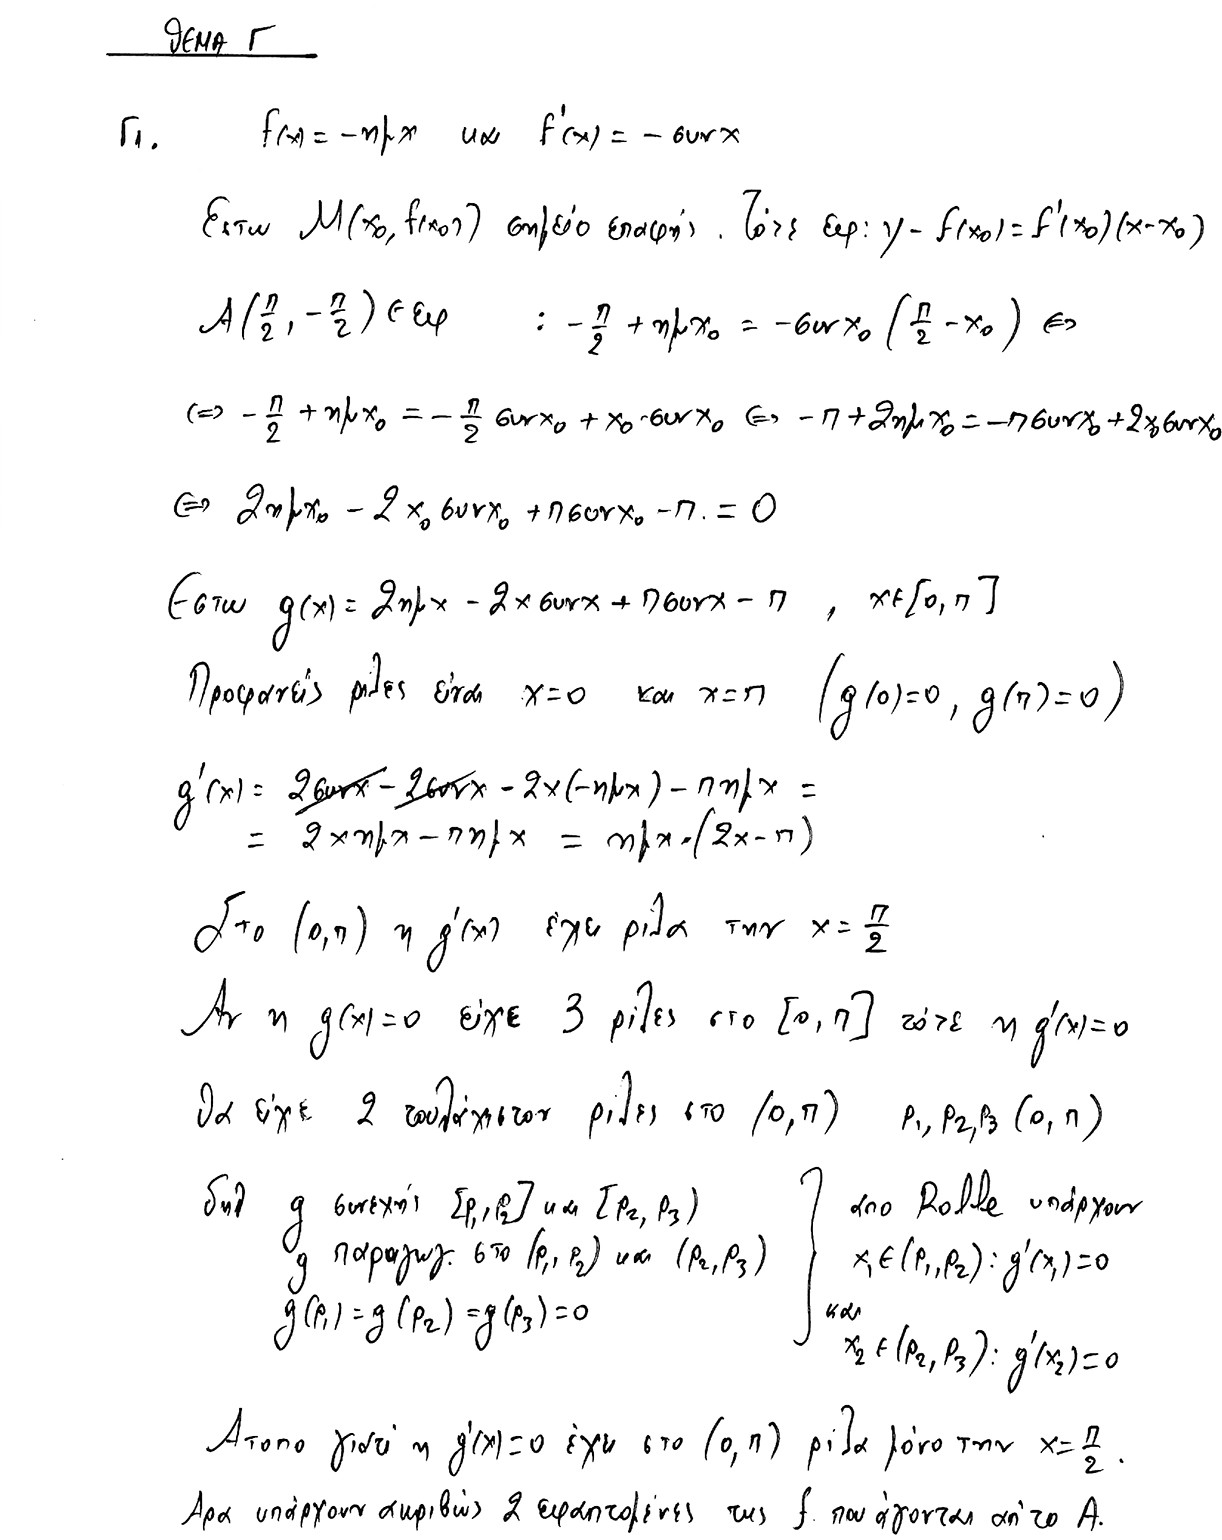 ΘΕΜΑ Γ
Γ1. f(x) = -ημx και f'(x) = - συνx
Έστω M(x₀, f(x₀)) σημείο επαφής. Τότε εφ: y - f(x₀) = f'(x₀)(x-x₀)
A(π/2, -π/2) ∈ εφ : -π/2 + ημx₀ = -συνx₀ (π/2 - x₀) ⇔
⇔ -π/2 + ημx₀ = -π/2 συνx₀ + x₀·συνx₀ ⇔ -π + 2ημx₀ = -πσυνx₀ + 2x₀συνx₀
⇔ 2ημx₀ - 2x₀συνx₀ + πσυνx₀ - π. = 0
Έστω g(x) = 2ημx - 2xσυνx + πσυνx - π , x∈[0, π]
Προφανείς ρίζες είναι x=0 και x=π (g(0)=0, g(π)=0)
g'(x) = 2συνx - 2συνx - 2x(-ημx) - πημx =
= 2xημx - πημx = ημx·(2x-π)
Στο (0,π) η g'(x) έχει ρίζα την x = π/2
Αν η g(x)=0 είχε 3 ρίζες στο [0, π] τότε η g'(x)=0
θα είχε 2 τουλάχιστον ρίζες στο (0,π) ρ₁, ρ₂, ρ₃ (0, π)
δηλ g συνεχής [ρ₁, ρ₂] και [ρ₂, ρ₃] απο Rolle υπάρχουν
g παραγωγ. στο (ρ₁, ρ₂) και (ρ₂, ρ₃) x₁∈(ρ₁, ρ₂): g'(x₁)=0
g(ρ₁) = g(ρ₂) = g(ρ₃) = 0 και
x₂∈(ρ₂, ρ₃): g'(x₂)=0
Άτοπο γιατί η g'(x)=0 έχει στο (0,π) ρίζα μόνο την x = π/2.
Άρα υπάρχουν ακριβώς 2 εφαπτομένες της f που άγονται απ το A.